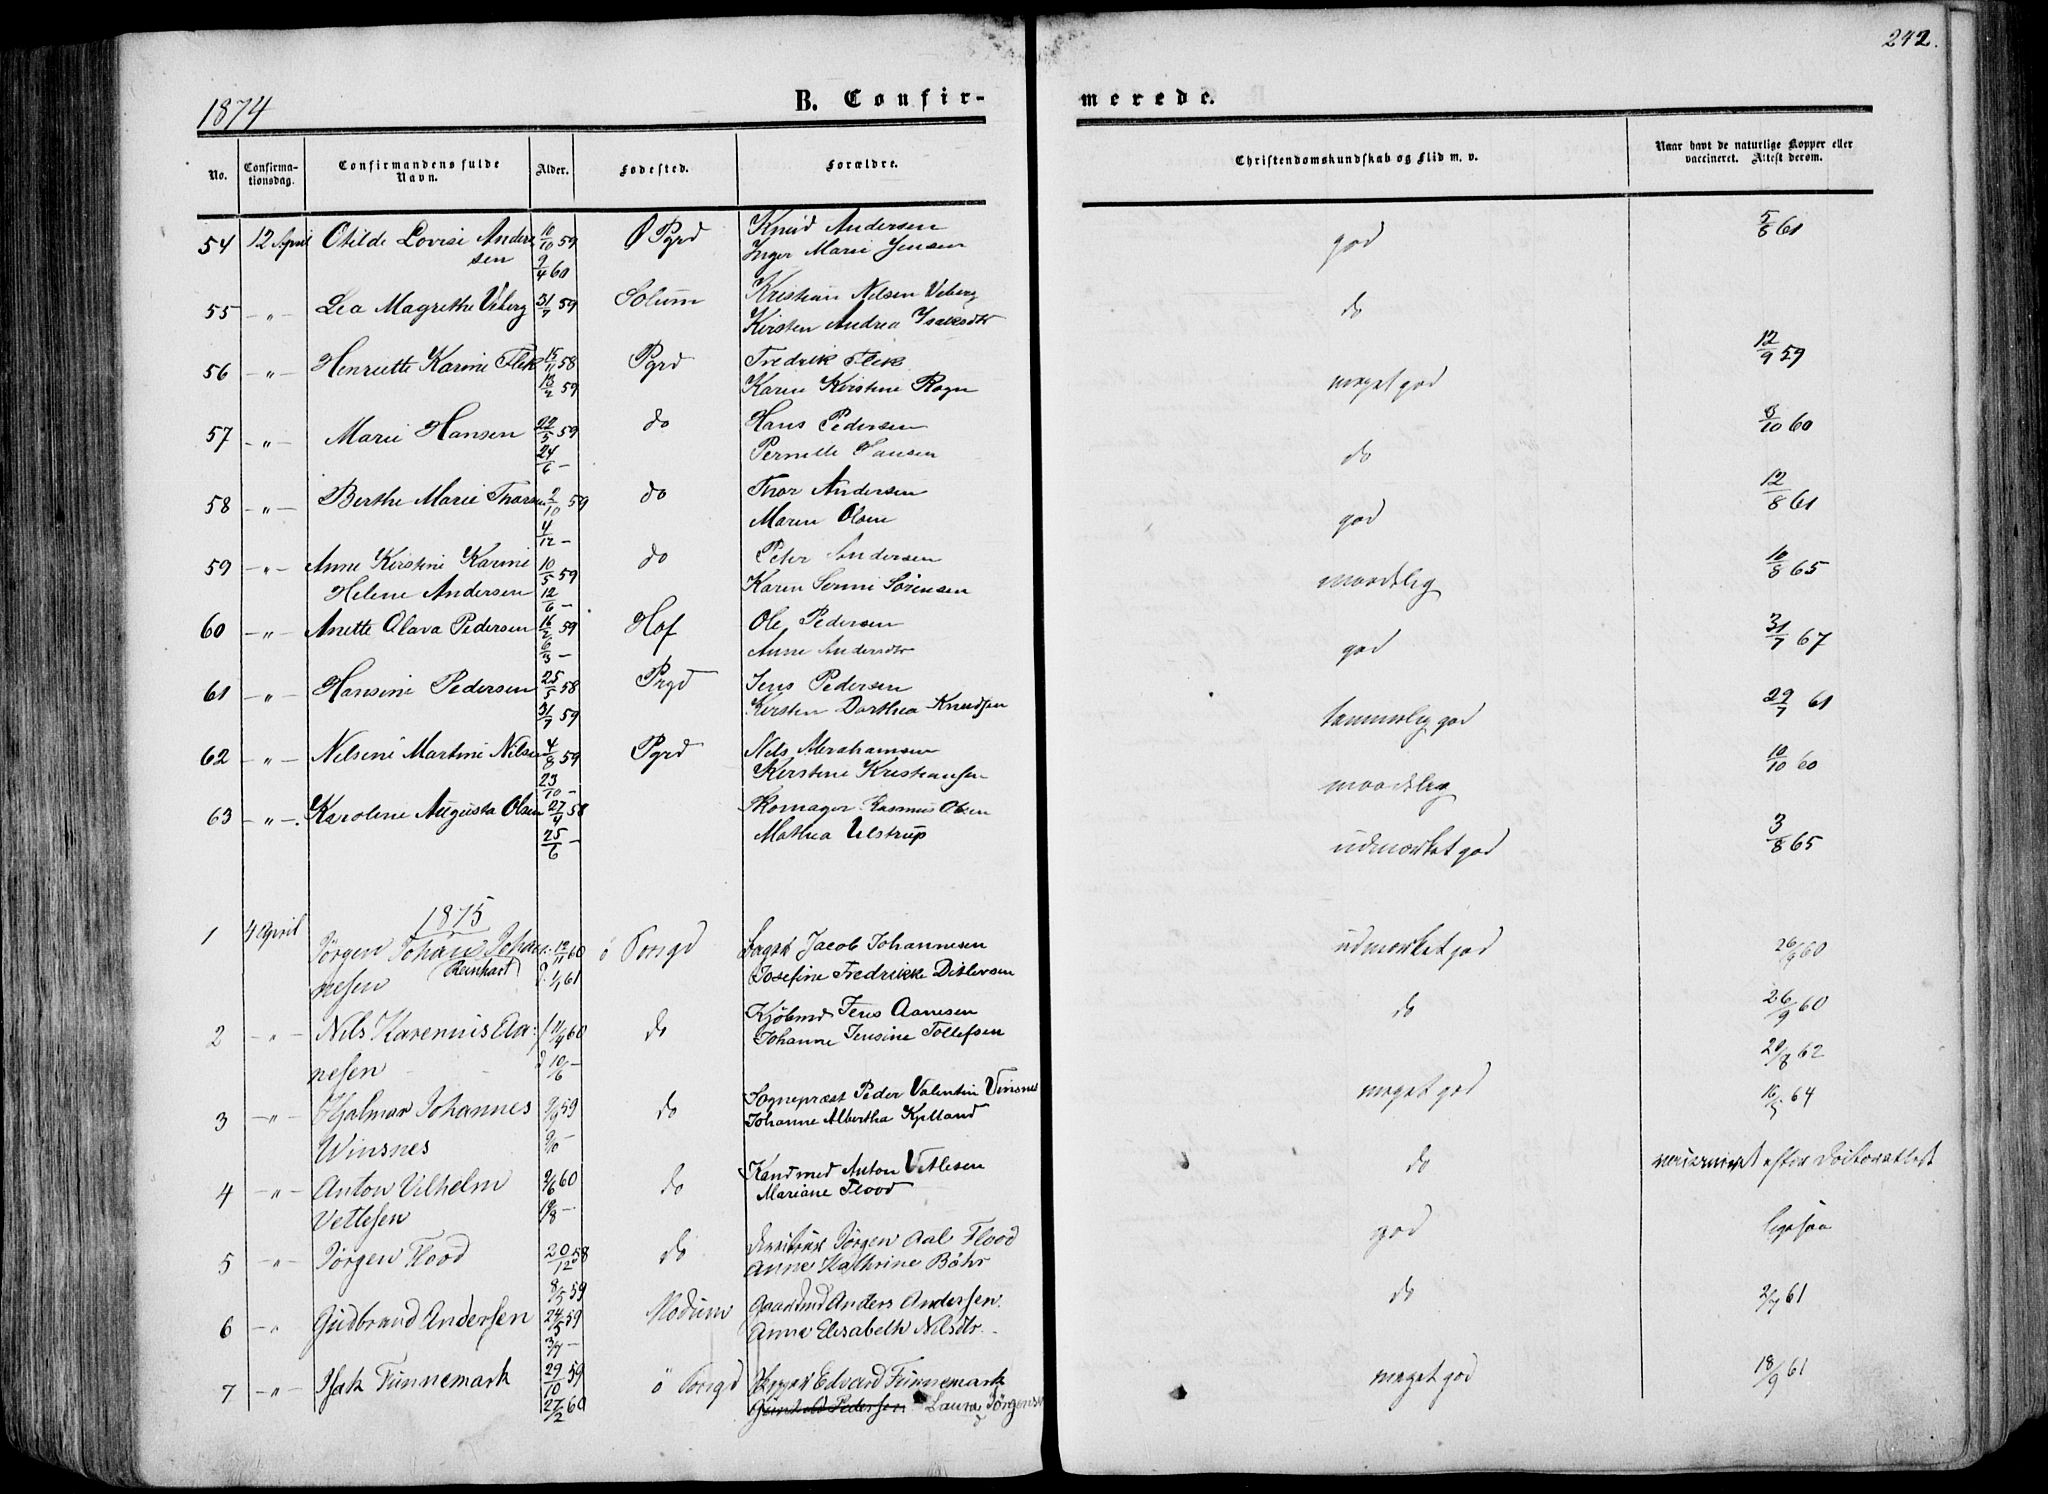 242.
1874
B. Confir-
merede.
No.
Confirma-
tionsdag.
Confirmandens fulde
Navn.
Alder.
Fødested.
Forældre.
Christendomskundskab og Flid m. v.
Naar havt de naturlige Kopper eller
vaccineret. Attest derom.
54 12 April Otilde Lovise Ander- 10/10 59 Ø Pgrd Knud Andersen god 5/8 61
sen 9/4 60 Inger Marie Jensen
55 -"- Lea Magrethe Viberg 31/7 59 Solum Kristian Nilsen Viberg do
Kirsten Andrea Isaksdtr
56 -"- Henriette Karine Flek 15/11 58 Pgrd Fredrik Flek meget god 12/9 59
13/2 59 Karen Kirstine Rogn
57 -"- Marie Hansen 22/5 59 do Hans Pedersen do 8/10 60
24/6 - Pernille Hansen
58 -"- Berthe Marie Thorsen 2/10 59 do Thor Andersen god 12/8 61
4/12 - Maren Olsen
59 -"- Anne Kirstine Karine 10/5 59 do Peter Andersen maadelig 10/8 65
Helene Andersen 12/6 - Karen Sørensen
60 -"- Anette Olava Pedersen 16/2 59 Hof Ole Pedersen god 31/7 67
6/3 - Anne Andersdtr
61 -"- Hansine Pedersen 25/5 58 Prgd Jens Pedersen temmelig god 29/7 61
31/7 59 Kirsten Dorthea Knudsen
62 -"- Nilsine Martine Nilsen 4/8 59 Pgrd Nils Abrahamsen maadelig 10/10 60
23/10 - Kirstine Kristiansen
63 -"- Karoline Augusta Olsen 27/4 58 Skomager Rasmus Olsen udmærket god 3/8 65
25/6 - Mathea Ulstrup
1875
1 4 April Jørgen Johan Johan- 12/11 60 ø Porsgd Jacob Johannesen udmærket god 26/9 60
nesen (Reinhart) 1/1 61 Josefine Fredrikke Ditlevsen
2 -"- Nils Karenius Aa- f 11/4 60 do Kjøbmd Jens Aanesen do 26/9 60
nesen d 10/6 - Johanne Jensine Tollefsen
3 -"- Hjalmar Johannes 9/9 59 do Sognepræst Peder Valentin Vinsnes meget god 16/5 64
Winsnes 9/10 - Johanne Albertha Kylland
4 -"- Anton Vilhelm 2/6 60 do Kand med Anton Vetlesen do vaccineret efter Doctorattest
Vetlesen 19/8 - Mariane Flood
5 -"- Jørgen Flood 20/12 58 do Jørgen Aal Flood god ligesaa
8/5 59 Anne Kathrine Bøhr
6 -"- Gudbrand Andersen 24/5 59 Modum Gaardmd Anders Andersen do 2/7 61
3/7 - Anne Elisabeth Nilsdtr.
7 -"- Isak Funnemark 29/10 59 ø Porsgd Skipper Edvard Funnemark meget god 18/9 61
27/2 60 Laura Jørgensen